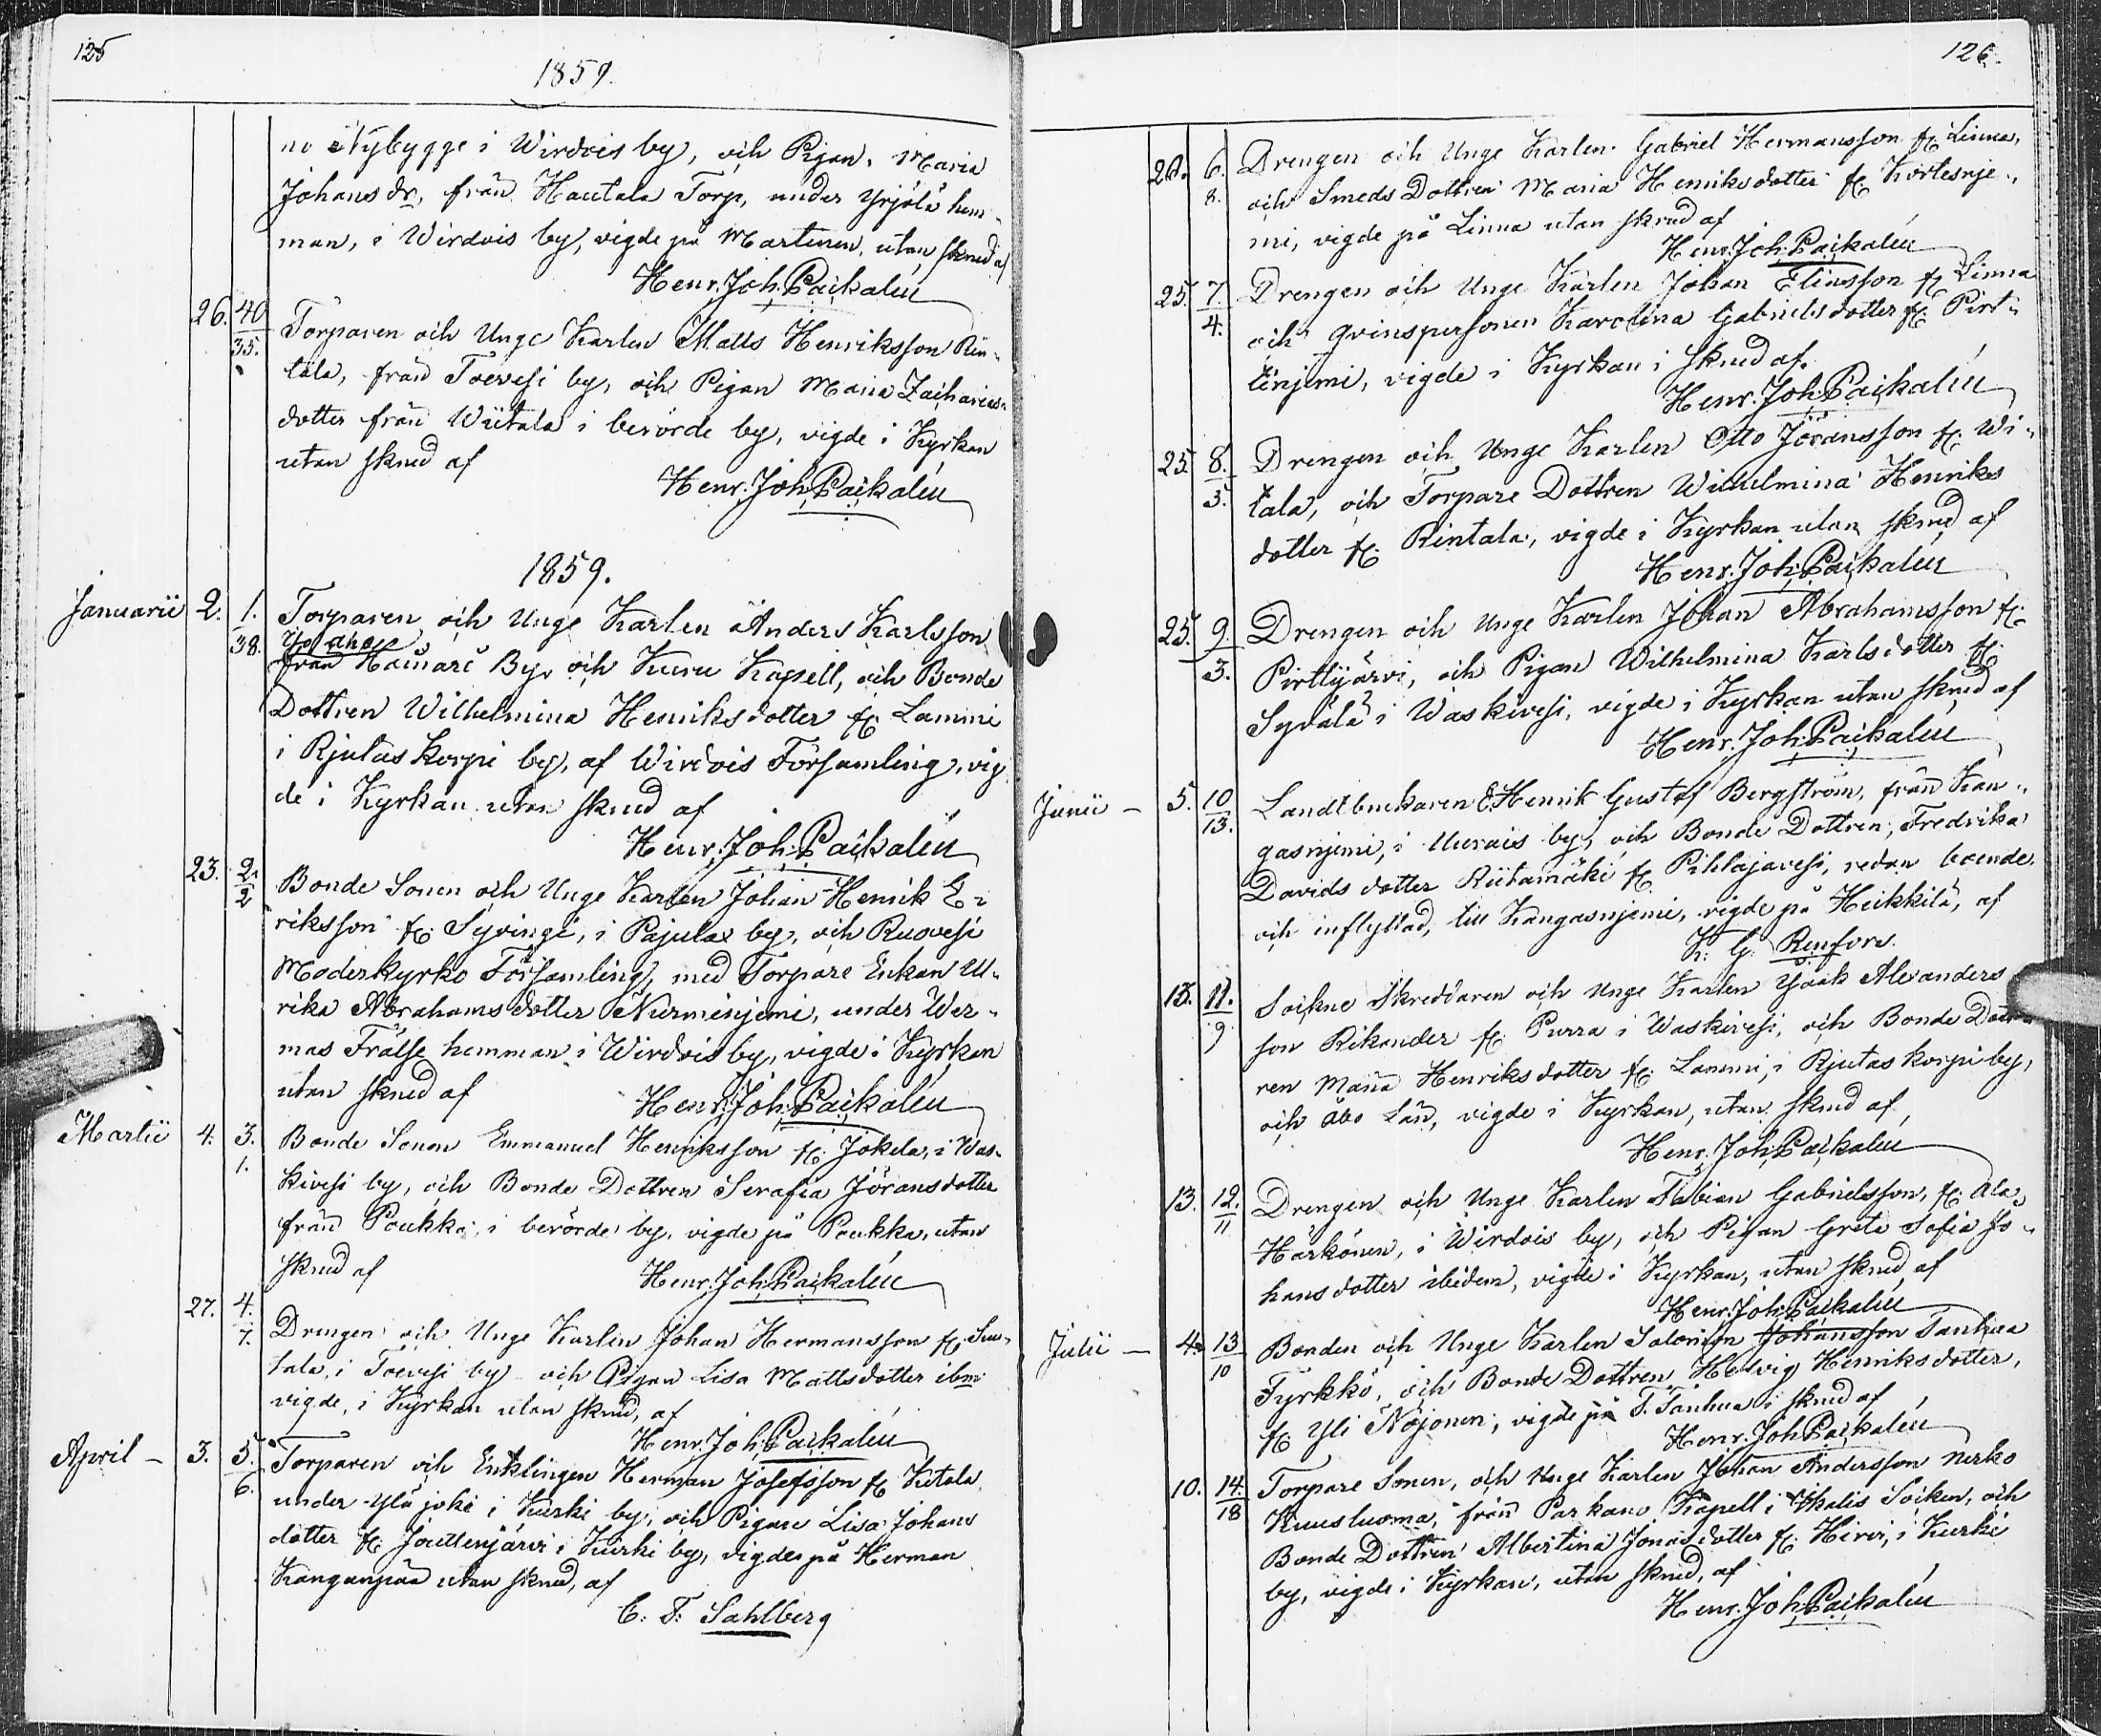 125
1859.
no Nybygge i Wirdois by, och Pigan, Maria
Johans dr, från Hautala Torp, under Yrjölä hem-
man, i Wirdois by, vigde på Martinen, utan skrud af
Henr. Joh. Paikalén
26. 40/35. Torparen och Unge Karlen Matts Henriksson Rin-
tala, från Toevesi by, och Pigan Maria Zacharias-
dotter från Wiitala i berörde by, vigde i Kyrkan
utan skrud af
Henr. Joh. Paikalén
1859.
Januarii 2. 1./38. Torparen och Unge Karlen Anders Karlsson
Yliaho
från Hainari By, och Kuru Kapell, och Bonde
Dottren Wilhelmina Henriksdotter fr. Lammi
i Rjutaskorpi by, af Wirdois Församling, vig
de i Kyrkan utan skrud af
Henr. Joh. Paikalén
23. 2./2 Bonde Sonen och Unge Karlen Johan Henrik E-
riksson fr. Syvingi, i Pajula by, och Ruovesi
Moderkyrko Församling, med Torpare Enkan Ul-
rika Abrahamsdotter Nurminjemi, under Wer-
mas Frälse hemman i Wirdois by, vigde i Kyrkan
utan skrud af
Henr. Joh. Paikalén
Martii 4. 3./1. Bonde Sonen Emmanuel Henriksson fr. Jokela, i Was-
kivesi by, och Bonde Dottren Serafia Jöransdotter
från Poukka, i berörde by, vigde på Poukka, utan
skrud af
Henr. Joh. Paikalén
27. 4./7. Drengen och Unge Karlen Johan Hermansson fr.
tala, i Toevesi by och Pigan Lisa Mattsdotter ibm
vigde, i Kyrkan utan skrud, af
Henr. Joh. Paikalén
April – 3. 5./6. Torparen och Enklingen Herman Josefsson fr. Kitala
under Yläjoki i Kurki by, och Pigan Lisa Johans
dotter fr. Jouttenjärvi i Kurki by, vigde på Herman
Kanganpää utan skrud, af
C. F. Sahlberg
126.
20. 6./8. Drengen och Unge Karlen Gabriel Hermansson fr. Linna,
och Smeds Dottren Maria Henriksdotter fr. Kortesnje-
mi, vigde på Linna utan skrud af
Henr. Joh. Paikalén
25. 7./4. Drengen och Unge Karlen Johan Eliasson fr. Linna
och qvinspersonen Karolina Gabrielsdotter fr. Pirt-
tinjemi, vigde i Kyrkan i skrud af.
Henr. Joh. Paikalén
25. 8./5. Drengen och Unge Karlen Otto Jöransson fr. Wi-
tala, och Torpare Dottren Wilhelmina Henriks
dotter fr. Rintala, vigde i Kyrkan utan skrud af
Henr. Joh. Paikalén
25. 9./3. Drengen och Unge Karlen Johan Abrahamsson fr.
Pirttijärvi, och Pigan Wilhelmina Karlsdotter fr.
Sydälä i Waskivesi, vigde i Kyrkan utan skrud af
Henr. Joh. Paikalén
Junii – 5. 10/13. Landtbrukaren E. Henrik Gustaf Bergström, från Kan-
gasnjemi, i Uurais by, och Bonde Dottren, Fredrika
Davidsdotter Riitamäki fr. Pihlajavesi, redan boende
och inflyttad, till Kangasnjemi, vigde på Heikkilä, af
K. G. Renfors.
13. 11./9 Sockne Skreddaren och Unge Karlen Isaak Alexanders
son Rikander fr. Purra i Waskivesi, och Bonde Dott
ren Maria Henriksdotter fr. Lammi, i Rjutaskorpi by,
och Åbo Län, vigde i Kyrkan, utan skrud af
Henr. Joh. Paikalén
13. 12./11 Drengen och Unge Karlen Fabian Gabrielsson, fr. Ala-
Härkönen, i Wirdois by, och Pigan Greta Sofia Jo-
hansdotter ibidem, vigde i Kyrkan, utan skrud af
Henr. Joh. Paikalén
Julii – 4. 13/10 Bonden och Unge Karlen Salomon Johansson Tanhua
Tyrkkö, och Bonde Dottren Hedvig Henriksdotter,
fr. Yli Nojonen, vigde på T. Tanhua i skrud af
Henr. Joh. Paikalén
10. 14./18 Torpare Sonen, och Unge Karlen Johan Andersson Nerko
Kuusluoma, från Parkano Kapell i Ikalis Socken, och
Bonde Dottren Albertina Jonasdotter fr. Hirvi, i Kurki
by, vigde i Kyrkan, utan skrud, af
Henr. Joh. Paikalén